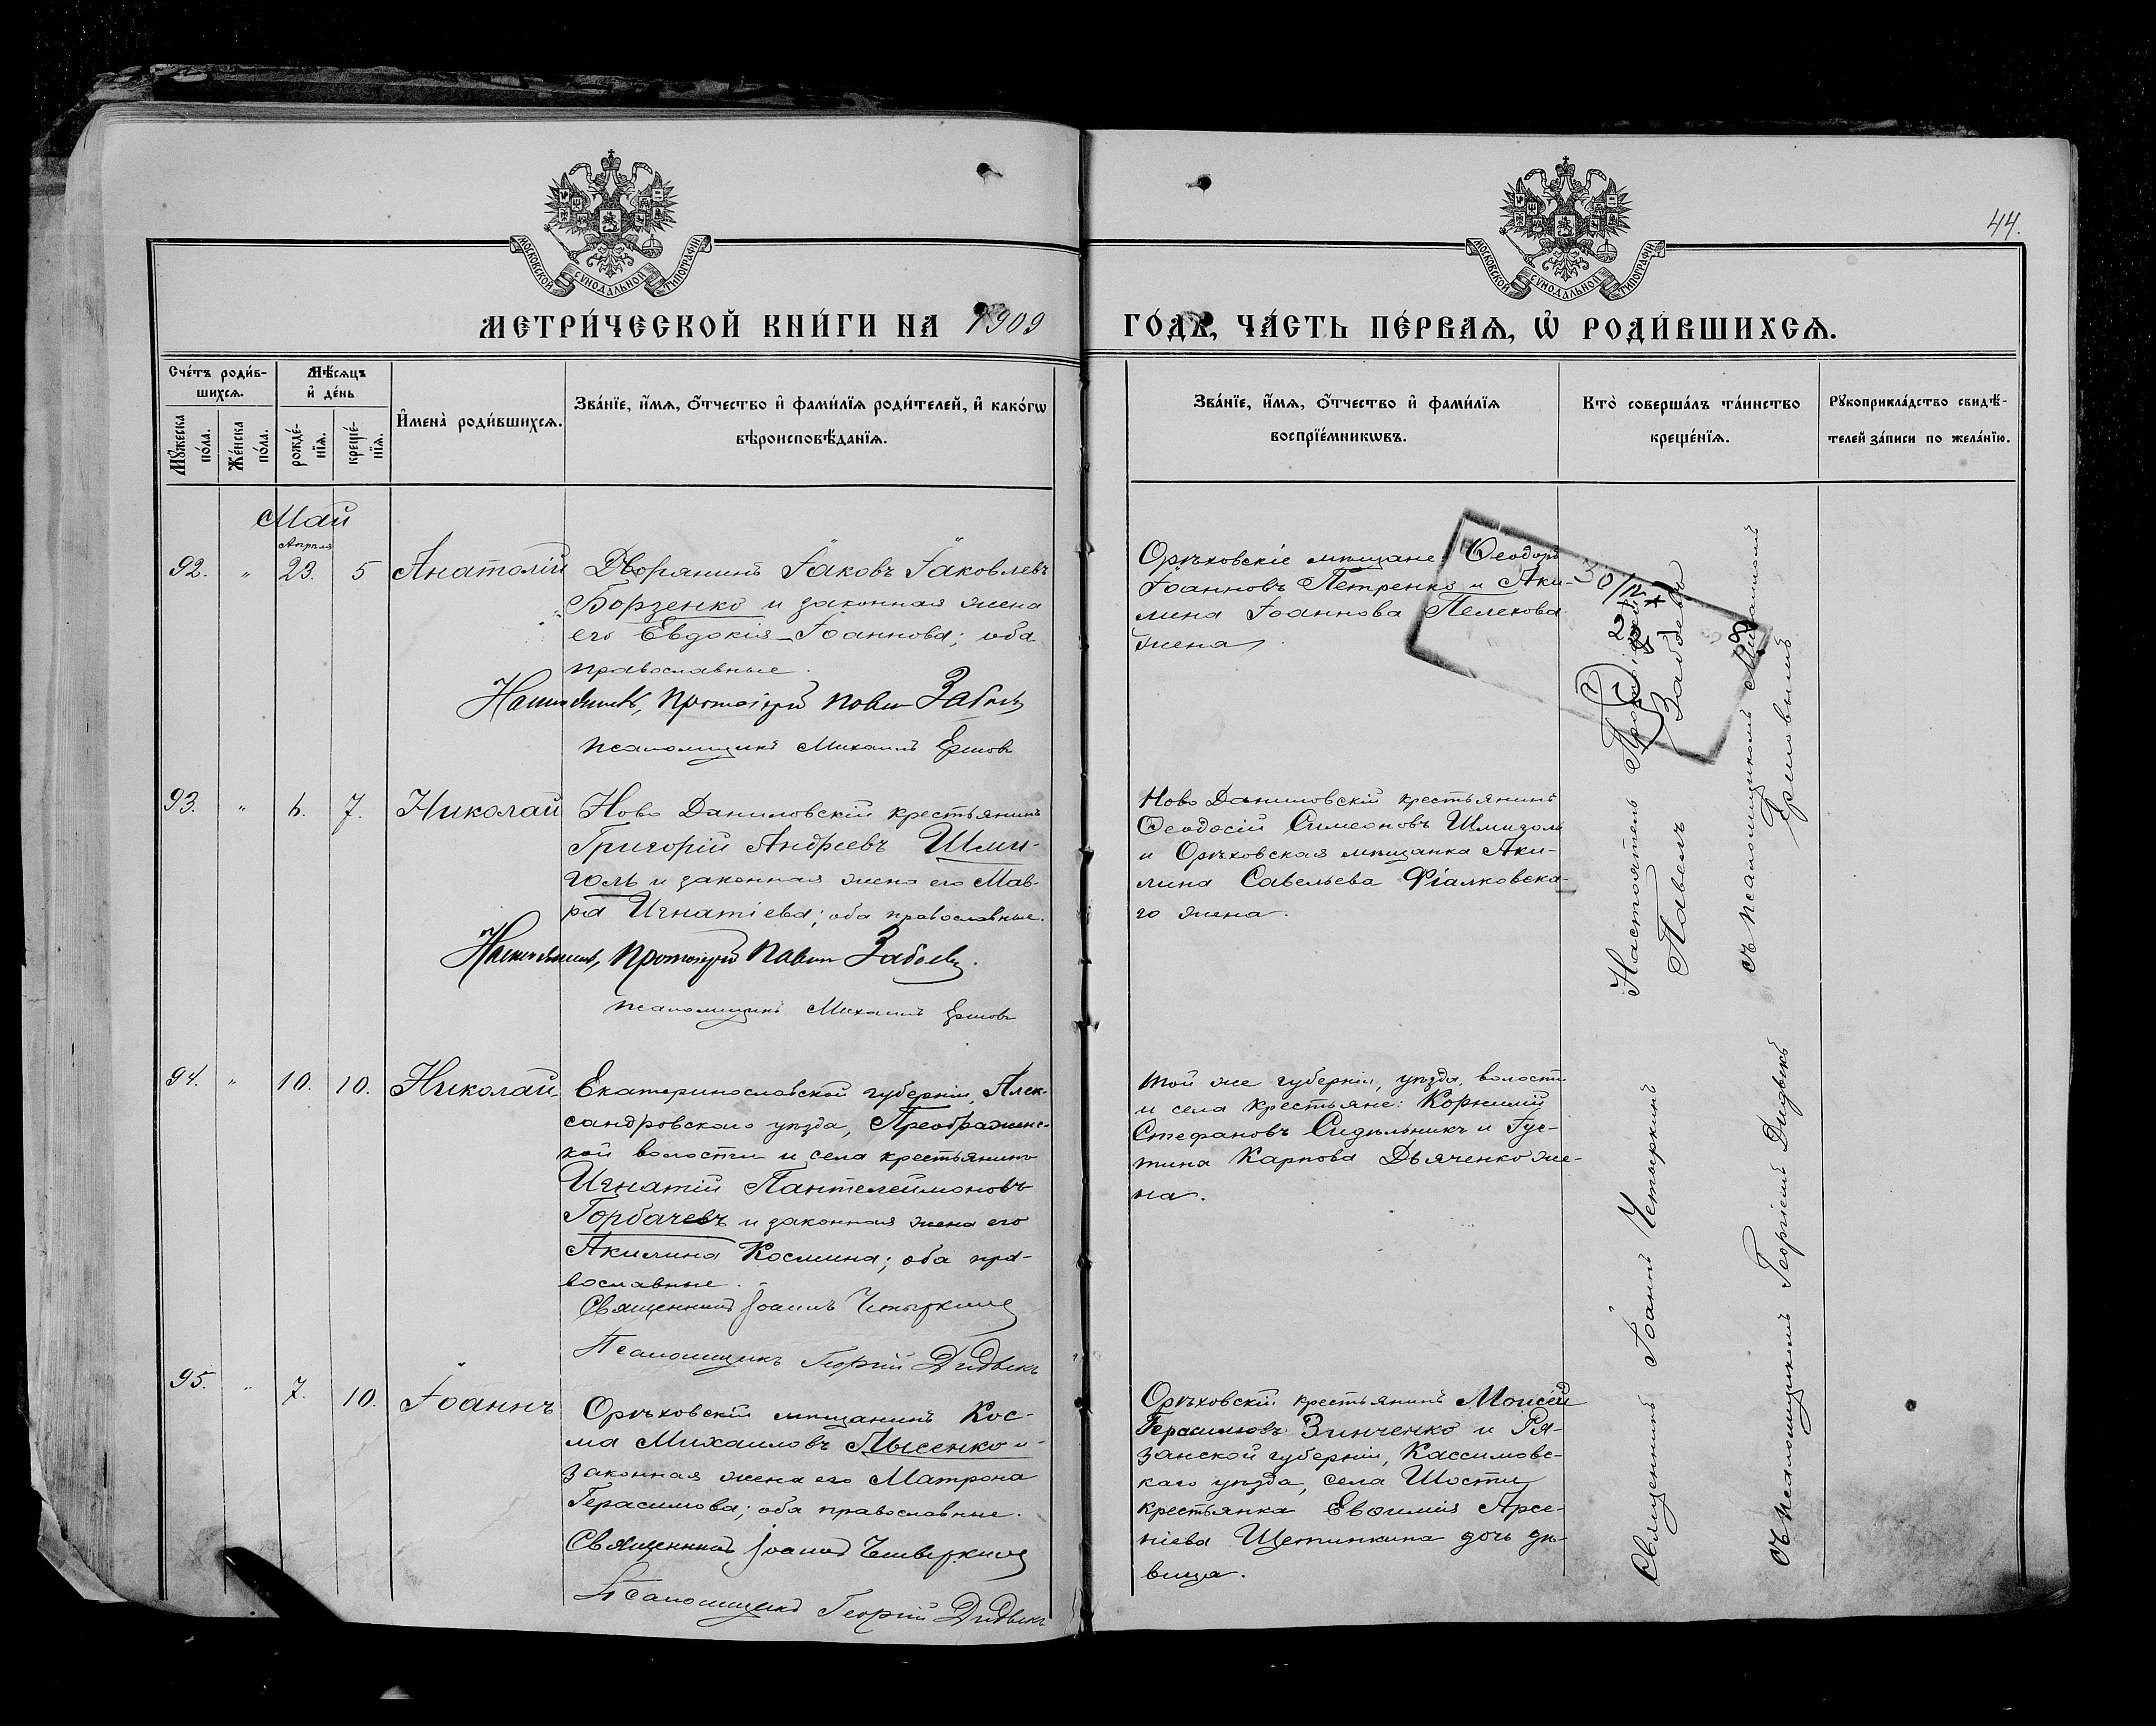 44.
МОСКОВСКОЙ СѴНОДАЛЬНОЙ ТИПОГРАФІИ
МОСКОВСКОЙ СѴНОДАЛЬНОЙ ТИПОГРАФІИ
МЕТРИ́ЧЕСКОЙ КНИ́ГИ НА 1909
ГО́ДЪ, ЧА́СТЬ ПЕ́РВАѦ, Ѡ҆ РОДИ́ВШИХСѦ.
Сче́тъ роди́в-
шихсѧ.
Мꙋ́жеска по́ла.
Же́нска по́ла.
Мѣ́сѧцъ
и҆ де́нь
рожде́-
нїѧ.
креще́-
нїѧ.
И҆мена̀ роди́вшихсѧ.
Зва́нїе, и҆́мѧ, ѻ҆́тчество и҆ фами́лїѧ роди́телей, и҆ како́гѡ
вѣроисповѣ́данїѧ.
Зва́нїе, и҆́мѧ, ѻ҆́тчество и҆ фами́лїѧ
воспрїе́мникѡвъ.
Кто̀ соверша́лъ та́инство
креще́нїѧ.
Рꙋкоприкла́дство свидѣ́-
телей за́писи по жела́нїю.
Май
Апрѣля
92. " 23. 5 Анатолій
Дворянинъ Іаковъ Іаковлевъ
Борзенко и законная жена
его Евдокія Іоаннова; оба
православные.
Настоятель, Протоіерей Павелъ Забѣлъ
Псаломщикъ Михаилъ Ершовъ
Орѣховскіе мѣщане: Ѳеодоръ
Іоанновъ Петренко и Аки-
лина Іоаннова Пелехова
жена.
93. " 6. 7. Николай
Ново Даниловскій крестьянинъ
Григорій Андреевъ Шми-
голь и законная жена его Мав-
ра Игнатіева; оба православные.
Настоятель, Протоіерей Павелъ
Псаломщикъ Михаилъ Ершовъ
Ново Даниловскій крестьянинъ
Ѳеодосій Симеоновъ Шмиголь
и Орѣховская мѣщанка Аки-
лина Савельева Фіалковска-
го жена.
Настоятель Протоіерей
Павелъ
съ псаломщикомъ Михаиломъ
Ершовымъ
94. " 10. 10. Николай
Екатеринославской губерніи, Алек-
сандровскаго уѣзда, Преображенс-
кой волости и села крестьянинъ
Игнатій Пантелеимоновъ
Горбачевъ и законная жена его
Акилина Космина; оба пра-
вославные.
Священникъ Іоаннъ Четыркинъ
Псаломщикъ Георгій Дидыкъ
Той же губерніи, уѣзда, волости
и села крестьяне: Корнилій
Стефановъ Сидѣльникъ и Іус-
тина Карпова Дьяченко же-
на.
95. " 7. 10. Іоаннъ
Орѣховскій мѣщанинъ Кос-
ма Михаиловъ Лысенко и
законная жена его Матрона
Герасимова; оба православные.
Священникъ Іоаннъ Четыркинъ
Псаломщикъ Георгій Дидыкъ
Орѣховскій крестьянинъ Моисей
Герасимовъ Зинченко и Ря-
занской губерніи, Кассимовс-
каго уѣзда, села Шости
крестьянка Евѳимія Арсе-
ніева Щетинкина дочь дѣ-
вица.
Священникъ Іоаннъ Четыркинъ
съ псаломщикомъ Георгіемъ Дидыкъ